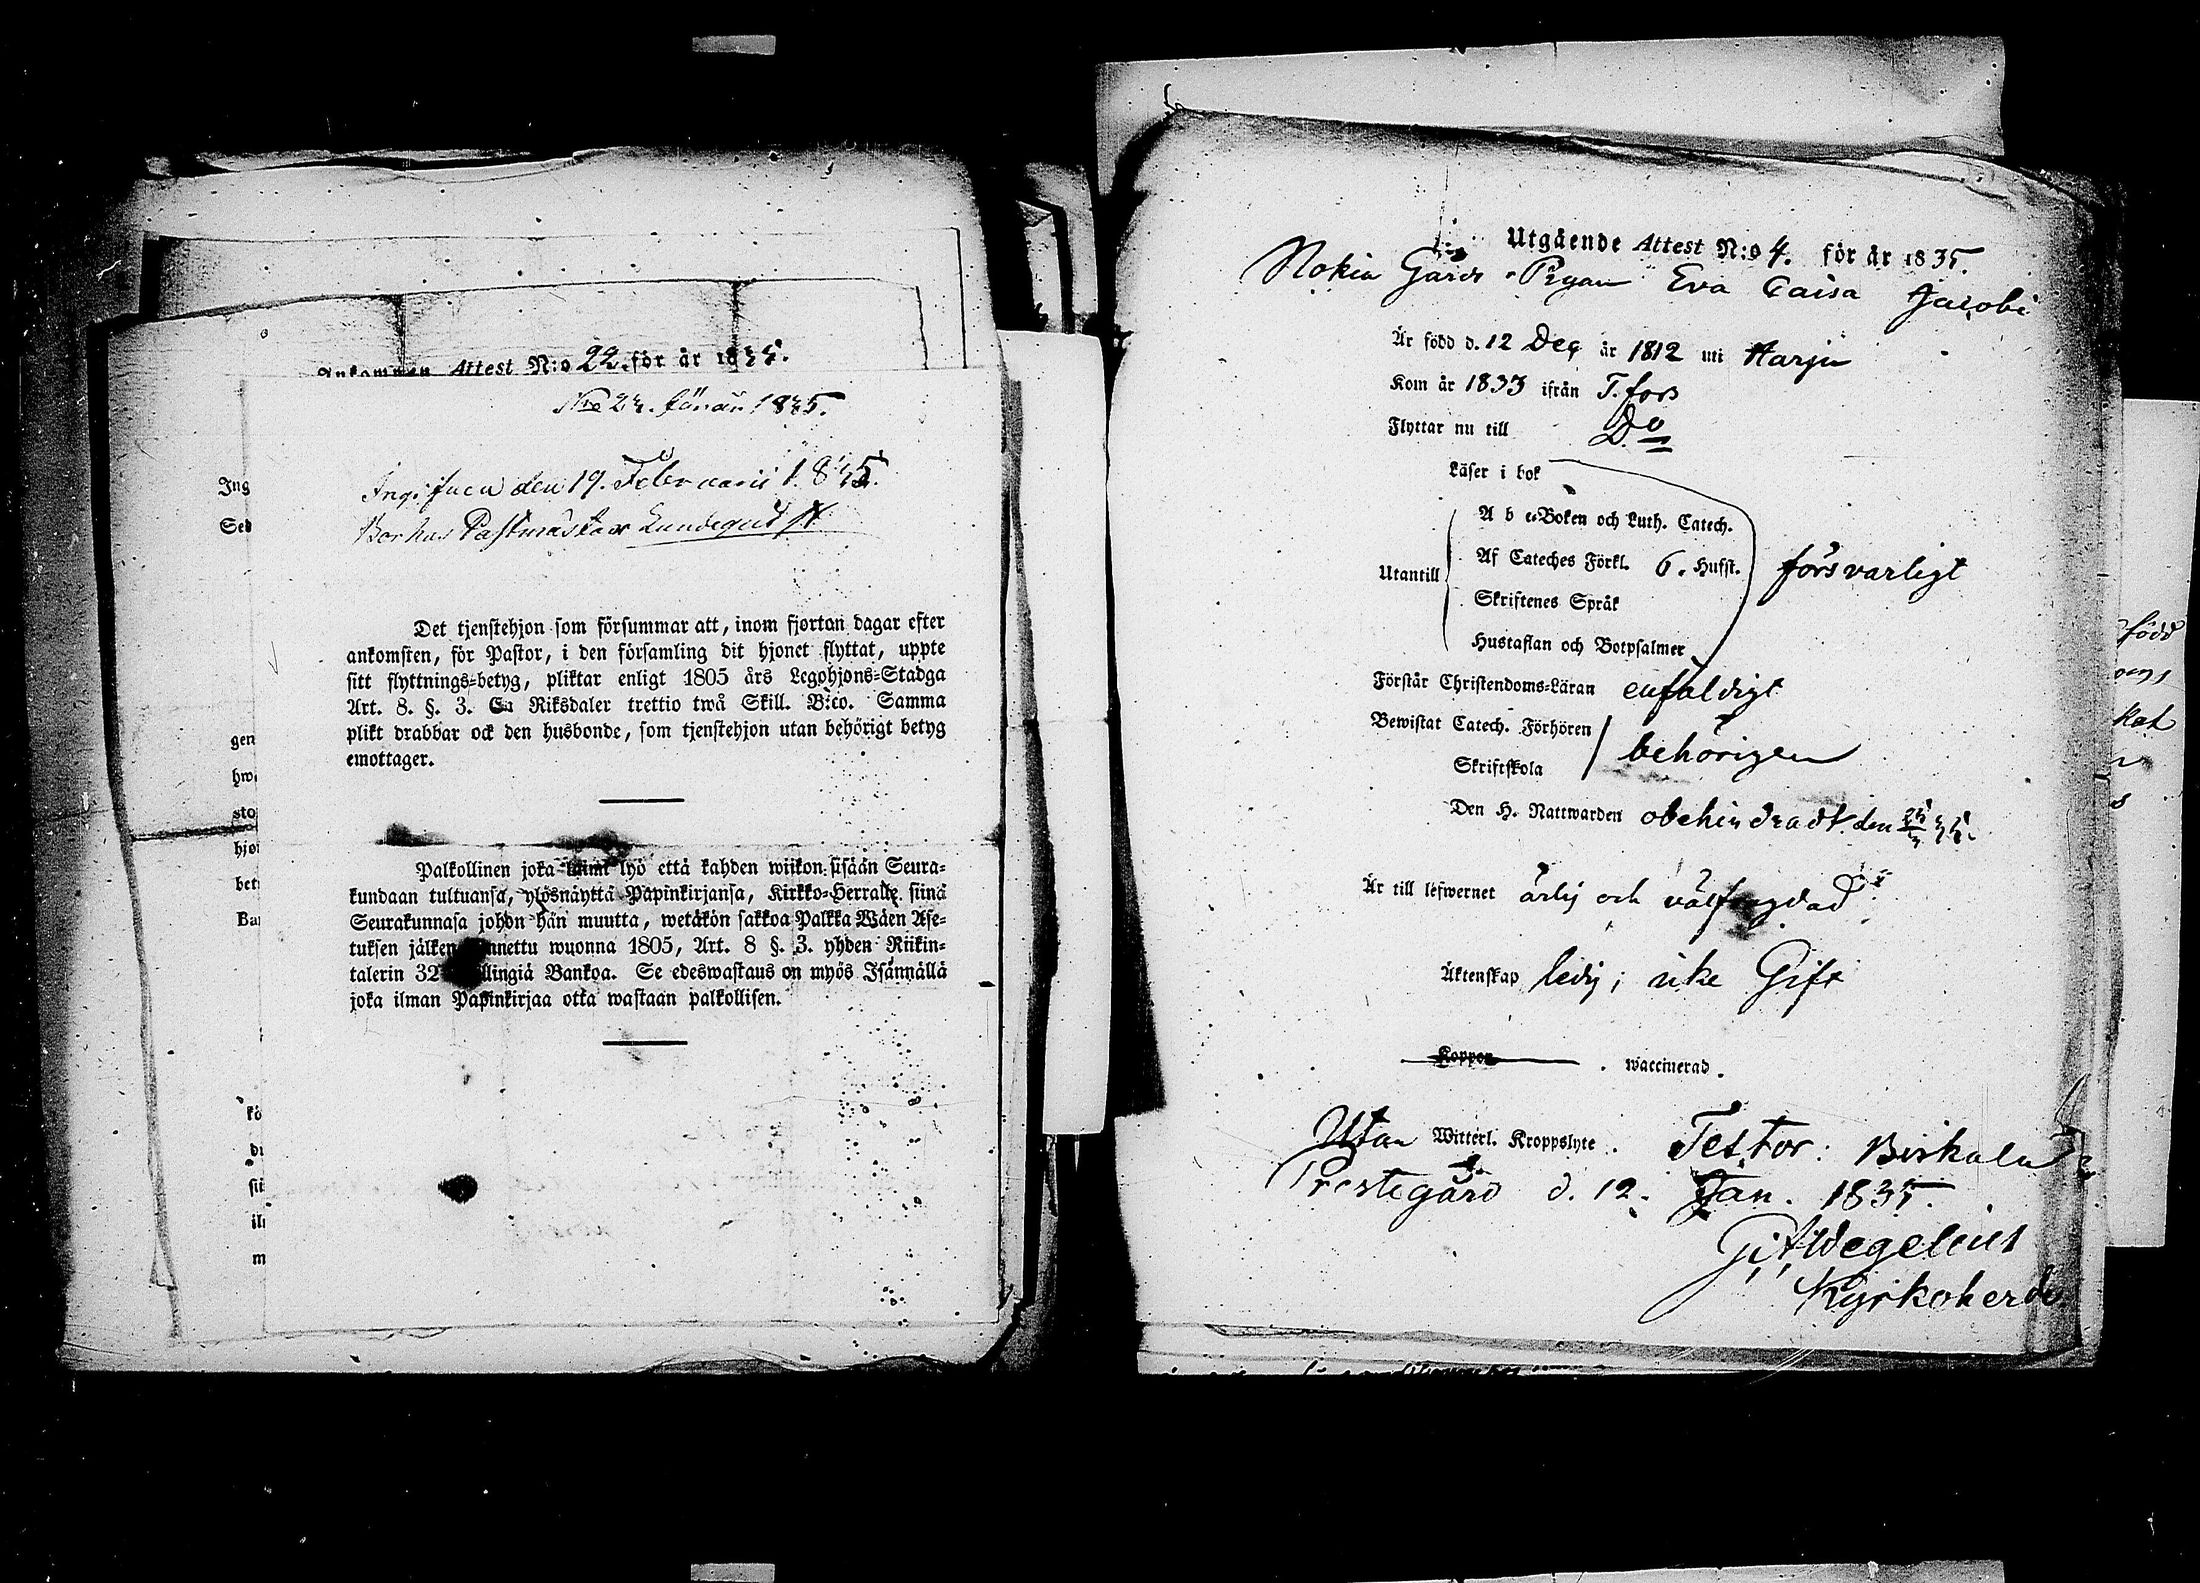 Ankommen Attest N:o 22. för år 1835.
Nro 23. för år 1835.
Ing
Sed
den 19. Februarii 1835.
Lundequist
Det tjenstehjon som försummar att, inom fjorton dagar efter
ankomsten, för Pastor, i den församling dit hjonet flyttat, uppte
sitt flyttnings-betyg, pliktar enligt 1805 års Legohjons-Stadga
Art. 8. §. 3. En Riksdaler trettio twå Skill. B:co. Samma
plikt drabbar ock den husbonde, som tjenstehjon utan behörigt betyg
emottager.
gen
hwa
sto
hjo
bet
Ba
Palkollinen joka lyö että kahden wiikon sisään Seura-
kundaan tultuansa, ylösnäyttä Papinkirjansa, Kirkko-Herralle siinä
Seurakunnasa johon hän muutta, wetäkön sakkoa Palkka Wäen Ase-
tuksen jälken annettu wuonna 1805, Art. 8 §. 3. yhden Riikin-
talerin 32 llingiä Bankoa. Se edeswastaus on myös Isännällä
joka ilman Papinkirjaa otta wastaan palkollisen.
kö
du
sii
ilm
m
Utgående Attest N:o 4. för år 1835.
Nokia Gårds Pigan Eva Caisa Jacobi
Är född d. 12 Dec år 1812 uti Harju
Kom år 1833 ifrån T.fors
Flyttar nu till Do
Läser i bok
A b c-Boken och Luth. Catech.
Utantill Af Cateches Förkl. 6. Hufst. försvarligt
Skriftenes Språk
Hustaflan och Botpsalmer
Förstår Christendoms-Läran enfaldigt
Bewistat Catech. Förhören
behörigen
Skriftskola
Den H. Nattwarden obehindradt. den
Är till lefwernet ärlig och välfrägdad
Äktenskap ledig; icke Gift
Koppor . waccinerad.
Utan Witterl. Kroppslyte. Testor. Birkala
Prestegård d. 12. Jan. 1835.
Wegelius
Kyrkoherde
född